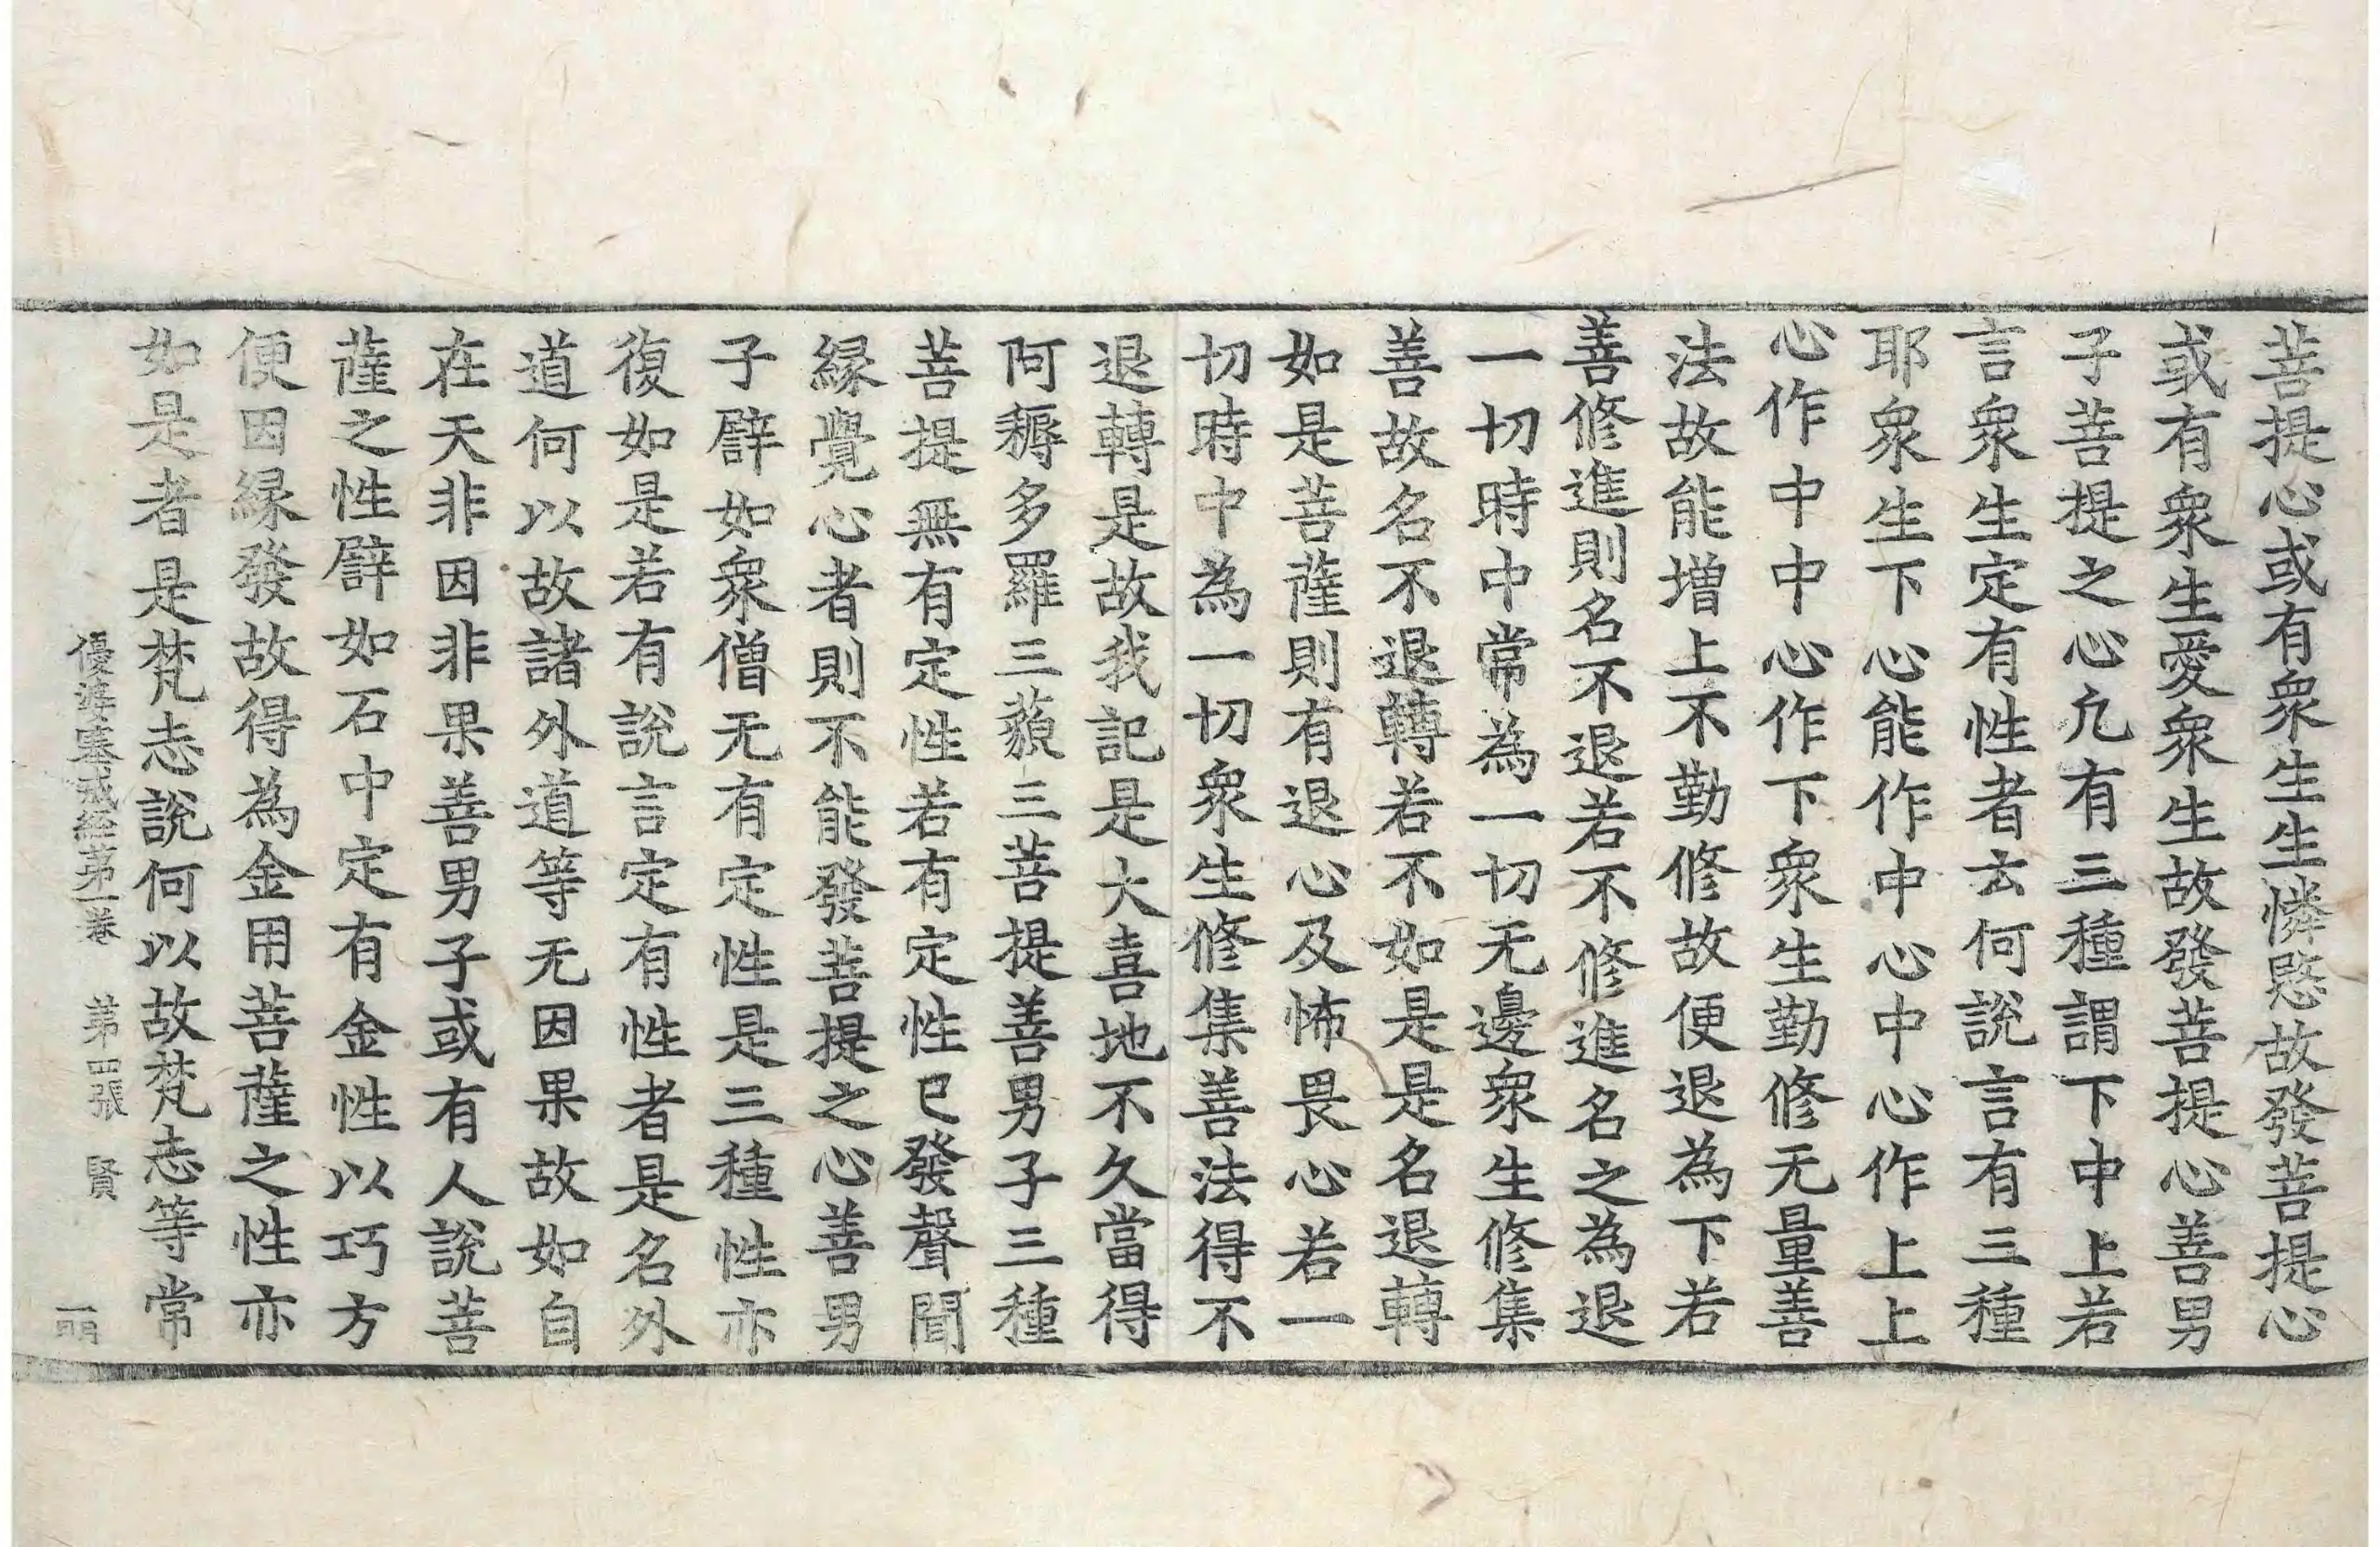 菩提心或有衆生生憐愍故發菩提心
或有衆生愛衆生故發菩提心善男
子菩提之心凢有三種謂下中上若
言衆生定有性者云何說言有三種
耶衆生下心能作中心中心作上上
心作中中心作下衆生勤修无量善
法故能增上不勤修故便退為下若
善修進則名不退若不修進名之為退
一切時中常為一切无邊衆生修集
善故名不退轉若不如是是名退轉
如是菩薩則有退心及怖畏心若一
切時中為一切衆生修集善法得不
退轉是故我記是大喜地不久當得
阿耨多羅三藐三菩提善男子三種
菩提無有定性若有定性已發聲聞
緣覺心者則不能發菩提之心善男
子譬如衆僧无有定性是三種性亦
復如是若有說言定有性者是名外
道何以故諸外道等无因果故如自
在天非因非果善男子或有人說菩
薩之性譬如石中定有金性以巧方
便因緣發故得為金用菩薩之性亦
如是者是梵志說何以故梵志等常
優婆塞戒經第一卷 第四張 賢